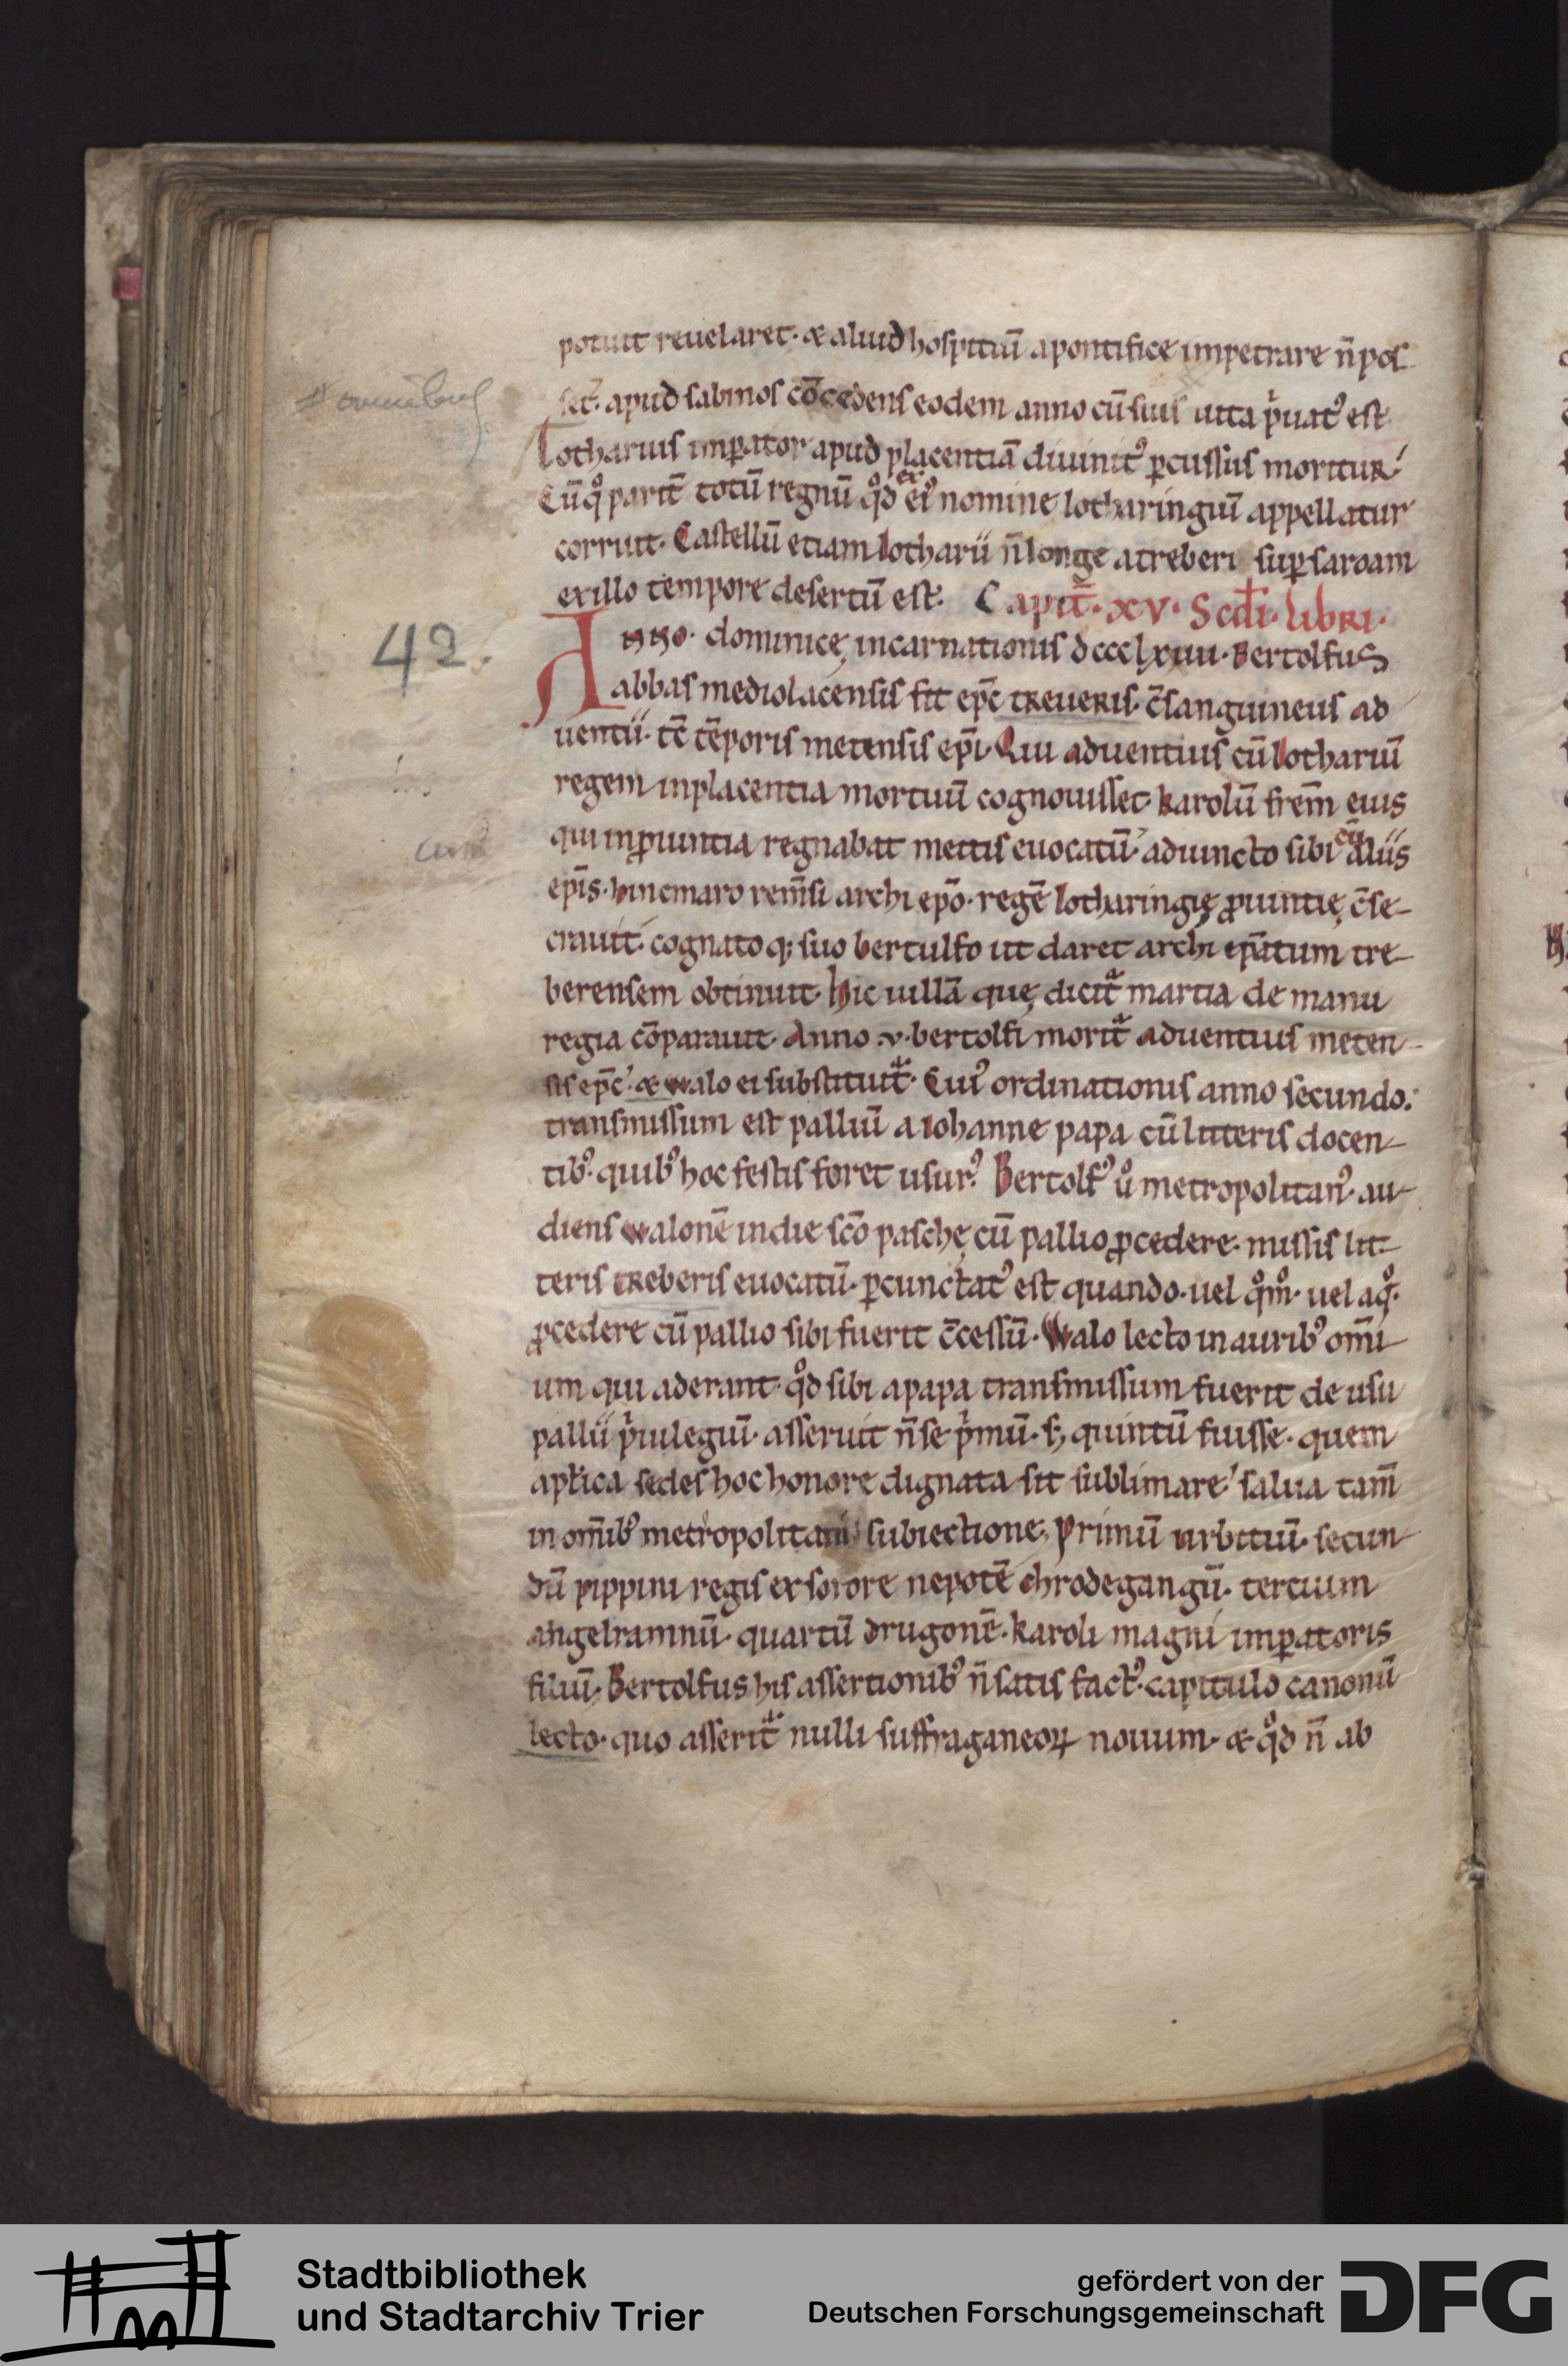 potuit reuelaret· & aliud hospitiū a pontifice impetrare n̄ pos
set· apud sabinos cōcedens eodem anno cū suis uita p̍uatꝰ est
Lotharius imꝑator apud placentiā diuinitꝰ ꝑcussus moritur·
Cūqͦ parit̄ totū regnū qͦd ex eiꝰ nomine lotharinguī appellatur
corruit· Castellū etiam lotharii n̄ longe a treberi suꝑ saroam
ex illo tempore desertū est· Capit̄· XV· Scdi· libri·
42.
Anno· dominicę incarnationis dccclxiiii· Bertolfus
abbas mediolacensis fit ep̄c treueris· c̄sanguineus ad
uentii· tc̄ tēporis metensis ep̄i· Qui aduentius cū lothariū
regem in placentia mortuū cognouisset· karolū frēm eius
qui in ꝓuintia regnabat mettis euocatū· adiuncto sibi cū aliis
cum
ep̄is· hincmaro rem̄si archi ep̄o· regē lotharingię ꝓuintię c̄se-
crauit· cognatoq; suo bertulfo ut daret archi ep̄atum tre-
berensem obtinuit· Hic uillā quę dicit᷑ martia de manu
regia cōparauit· Anno ·v· bertolfi morit᷑ aduentius meten-
sis ep̄c· & walo ei substituit᷑· Cuiꝰ ordinationis anno secundo·
transmissum est palliū a iohanne papa cū litteris docen-
tibꝰ· quibꝰ hoc festis foret usurꝰ· Bertolfꝰ uͦ metropolitanꝰ· au-
diens walonē in die scō paschę cū pallio ꝓcedere· missis lit-
teris treberis euocatū· ꝑcunctatꝰ est quando· uel qͦmͦ· uel a qͦ·
ꝓcedere cū pallio sibi fuerit c̄cessū· Walo lecto in auribꝰ omī-
um qui aderant· qͦd sibi a papa transmissum fuerit de usu
pallii p̍uilegiū· asseruit n̄ se p̍mū· s; quintū fuisse· quem
apl̄ica sedes hoc honore dignata sit sublimare· salua tam̄
in om̄ibꝰ metropolitani subiectione· Primū urbitiū· secun-
dū pippini regis ex sorore nepotē chrodegangū· tercium
angelramnū· quartū drugonē· karoli magni imꝑatoris
filiū· Bertolfus his assertionibꝰ n̄ satis factꝰ· capitulo canonū
lecto· quo asserit᷑ nulli suffraganeoꝝ nouum· & qͦd n̄ ab
Stadtbibliothek
und Stadtarchiv Trier
gefördert von der
Deutschen Forschungsgemeinschaft
DFG